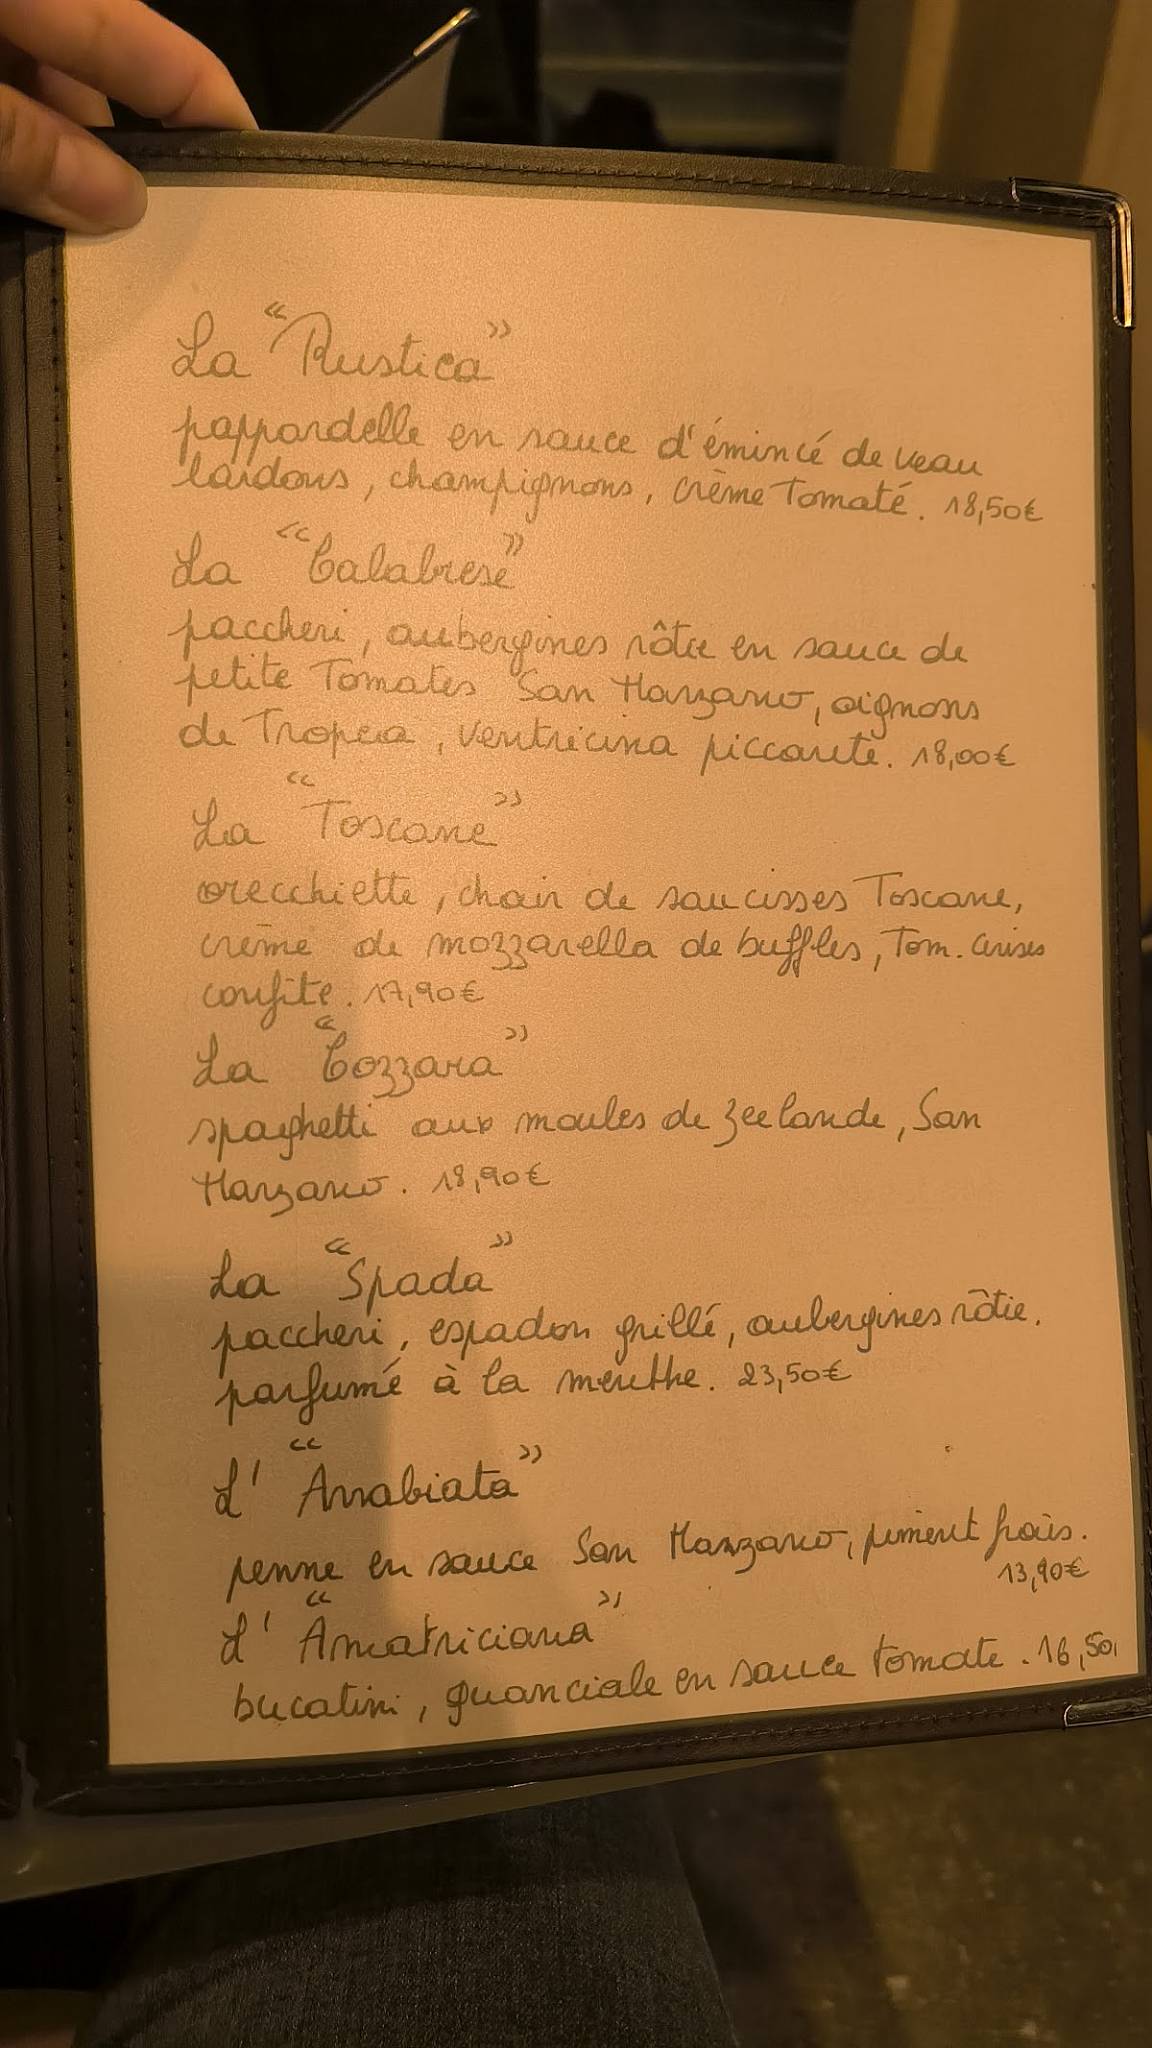 La "Rustica"
pappardelle en sauce d'émincé de veau
lardons, champignons, crème Tomaté. 18,50€
La "Calabrese"
paccheri, aubergines rôtie en sauce de
petite Tomates San Marzano, oignons
de Tropea, ventricina piccante. 18,00€
La "Toscane"
orecchiette, chair de saucisses Toscane,
crème de mozzarella de buffles, Tom. cerises
confite. 17,90€
La "Cozzara"
spaghetti aux moules de zeelande, San
Marzano. 18,90€
La "Spada"
paccheri, espadon grillé, aubergines rôtie.
parfumé à la menthe. 23,50€
L' "Arrabiata"
penne en sauce San Marzano, piment frais.
13,90€
L' "Amatriciana"
bucatini, guanciale en sauce tomate. 16,50